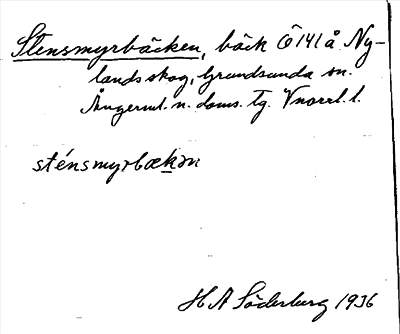 Stensmyrbäcken, bäck Ö 141 å Ny-
lands skog, Grundsunda sn.
Ångerml. n. doms. tg. Vnorrl. l.
sténsmyrbækən
H A Söderberg 1936